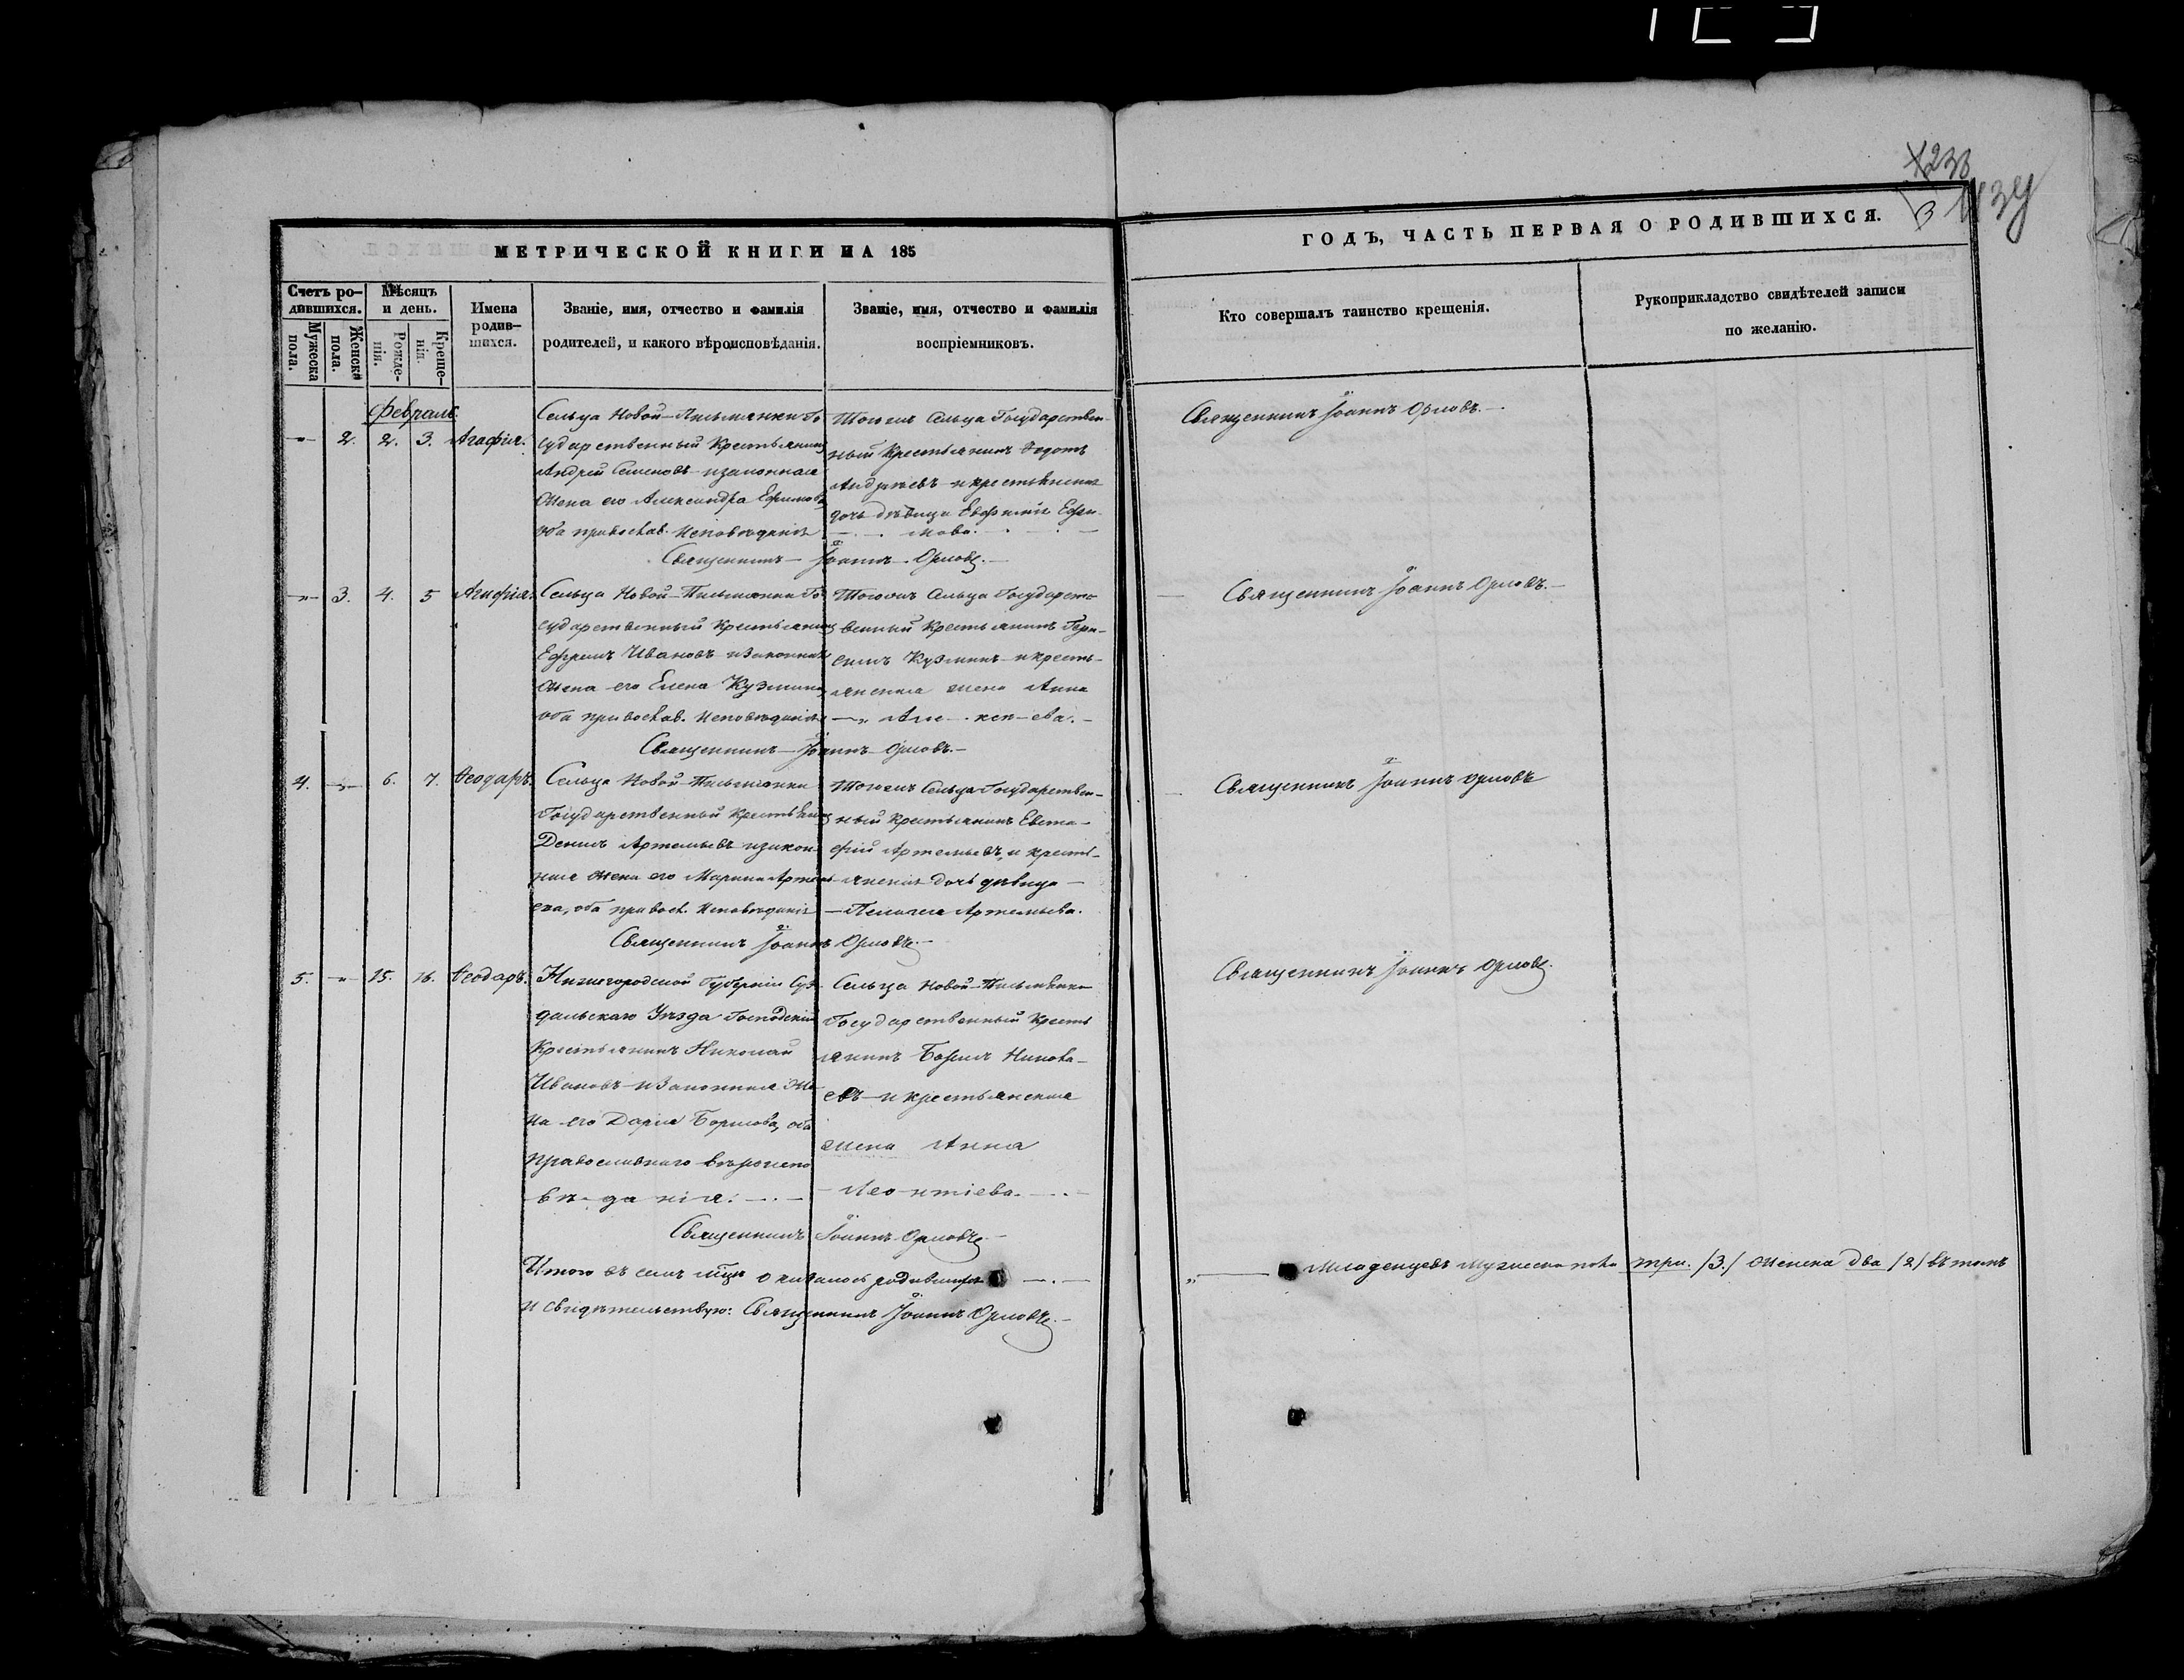 1238
3
1134
МЕТРИЧЕСКОЙ КНИГИ НА 185
ГОДЪ, ЧАСТЬ ПЕРВАЯ О РОДИВШИХСЯ.
Счетъ родившихся.
Мужеска пола.
Женска пола.
Мѣсяцъ и день.
Рожденія.
Крещенія.
Имена родившихся.
Званіе, имя, отчество и фамилія
родителей, и какого вѣроисповѣданія.
Званіе, имя, отчество и фамилія
воспріемниковъ.
Кто совершалъ таинство крещенія.
Рукоприкладство свидѣтелей записи
по желанію.
Февраль.
2. 2. 3. Агафія.
Сельца Новой-Письмянки Го
сударственный Крестьянинъ
Андрей Семеновъ и законная
Жена его Александра Ефимова
оба православ. Исповѣданія
Тогожъ Сельца Государствен-
ный Крестьянинъ Ѳедотъ
Андреевъ и крестьянская
дочь дѣвица Евфимія Ефи-
мова.
Священникъ Іоаннъ Орловъ.
Священникъ Іоаннъ Орловъ.
3. 4. 5 Агафія.
Сельца Новой-Письмянки Го
сударственный Крестьянинъ
Ефремъ Ивановъ и законная
Жена его Елена Кузмина
оба православ. Исповѣданія
Тогожъ Сельца Государст
венный Крестьянинъ Гера-
симъ Кузминъ и кресть-
янская жена Анна
Але-ксѣ-ева.
Священникъ Іоаннъ Орловъ.
Священникъ Іоаннъ Орловъ.
4. 6. 7. Ѳеодоръ.
Сельца Новой-Письмянки
Государственный Крестьянинъ
Денисъ Артемьевъ и закон-
ная Жена его Марина Артемь
ева, оба правосл. Исповѣданія
Тогожъ Сельца Государствен-
ный Крестьянинъ Евста-
фій Артемьевъ, и кресть-
янская дочь дѣвица
Пелагея Артемьева.
Священникъ Іоаннъ Орловъ
Священникъ Іоаннъ Орловъ.
5. 15. 16. Ѳеодоръ.
Нижегородской Губерніи Суз-
дальскаго Уѣзда Господскій
Крестьянинъ Николай
Ивановъ и Законная Же
на его Дарья Борисова, оба
православнаго вѣроиспо
вѣ-да нія.
Сельца Новой-Письмянки
Государственный Кресть
янинъ Борисъ Никола-
евъ и крестьянская
жена Анна
Лео-нтіева.
Священникъ Іоаннъ Орловъ.
Священникъ Іоаннъ Орловъ.
Итого въ семъ мцѣ оказалось родившихся
Младенцевъ мужеска пола три. /3./ Женска два /2/ въ томъ
и свидѣтельствую: Священникъ Іоаннъ Орловъ.